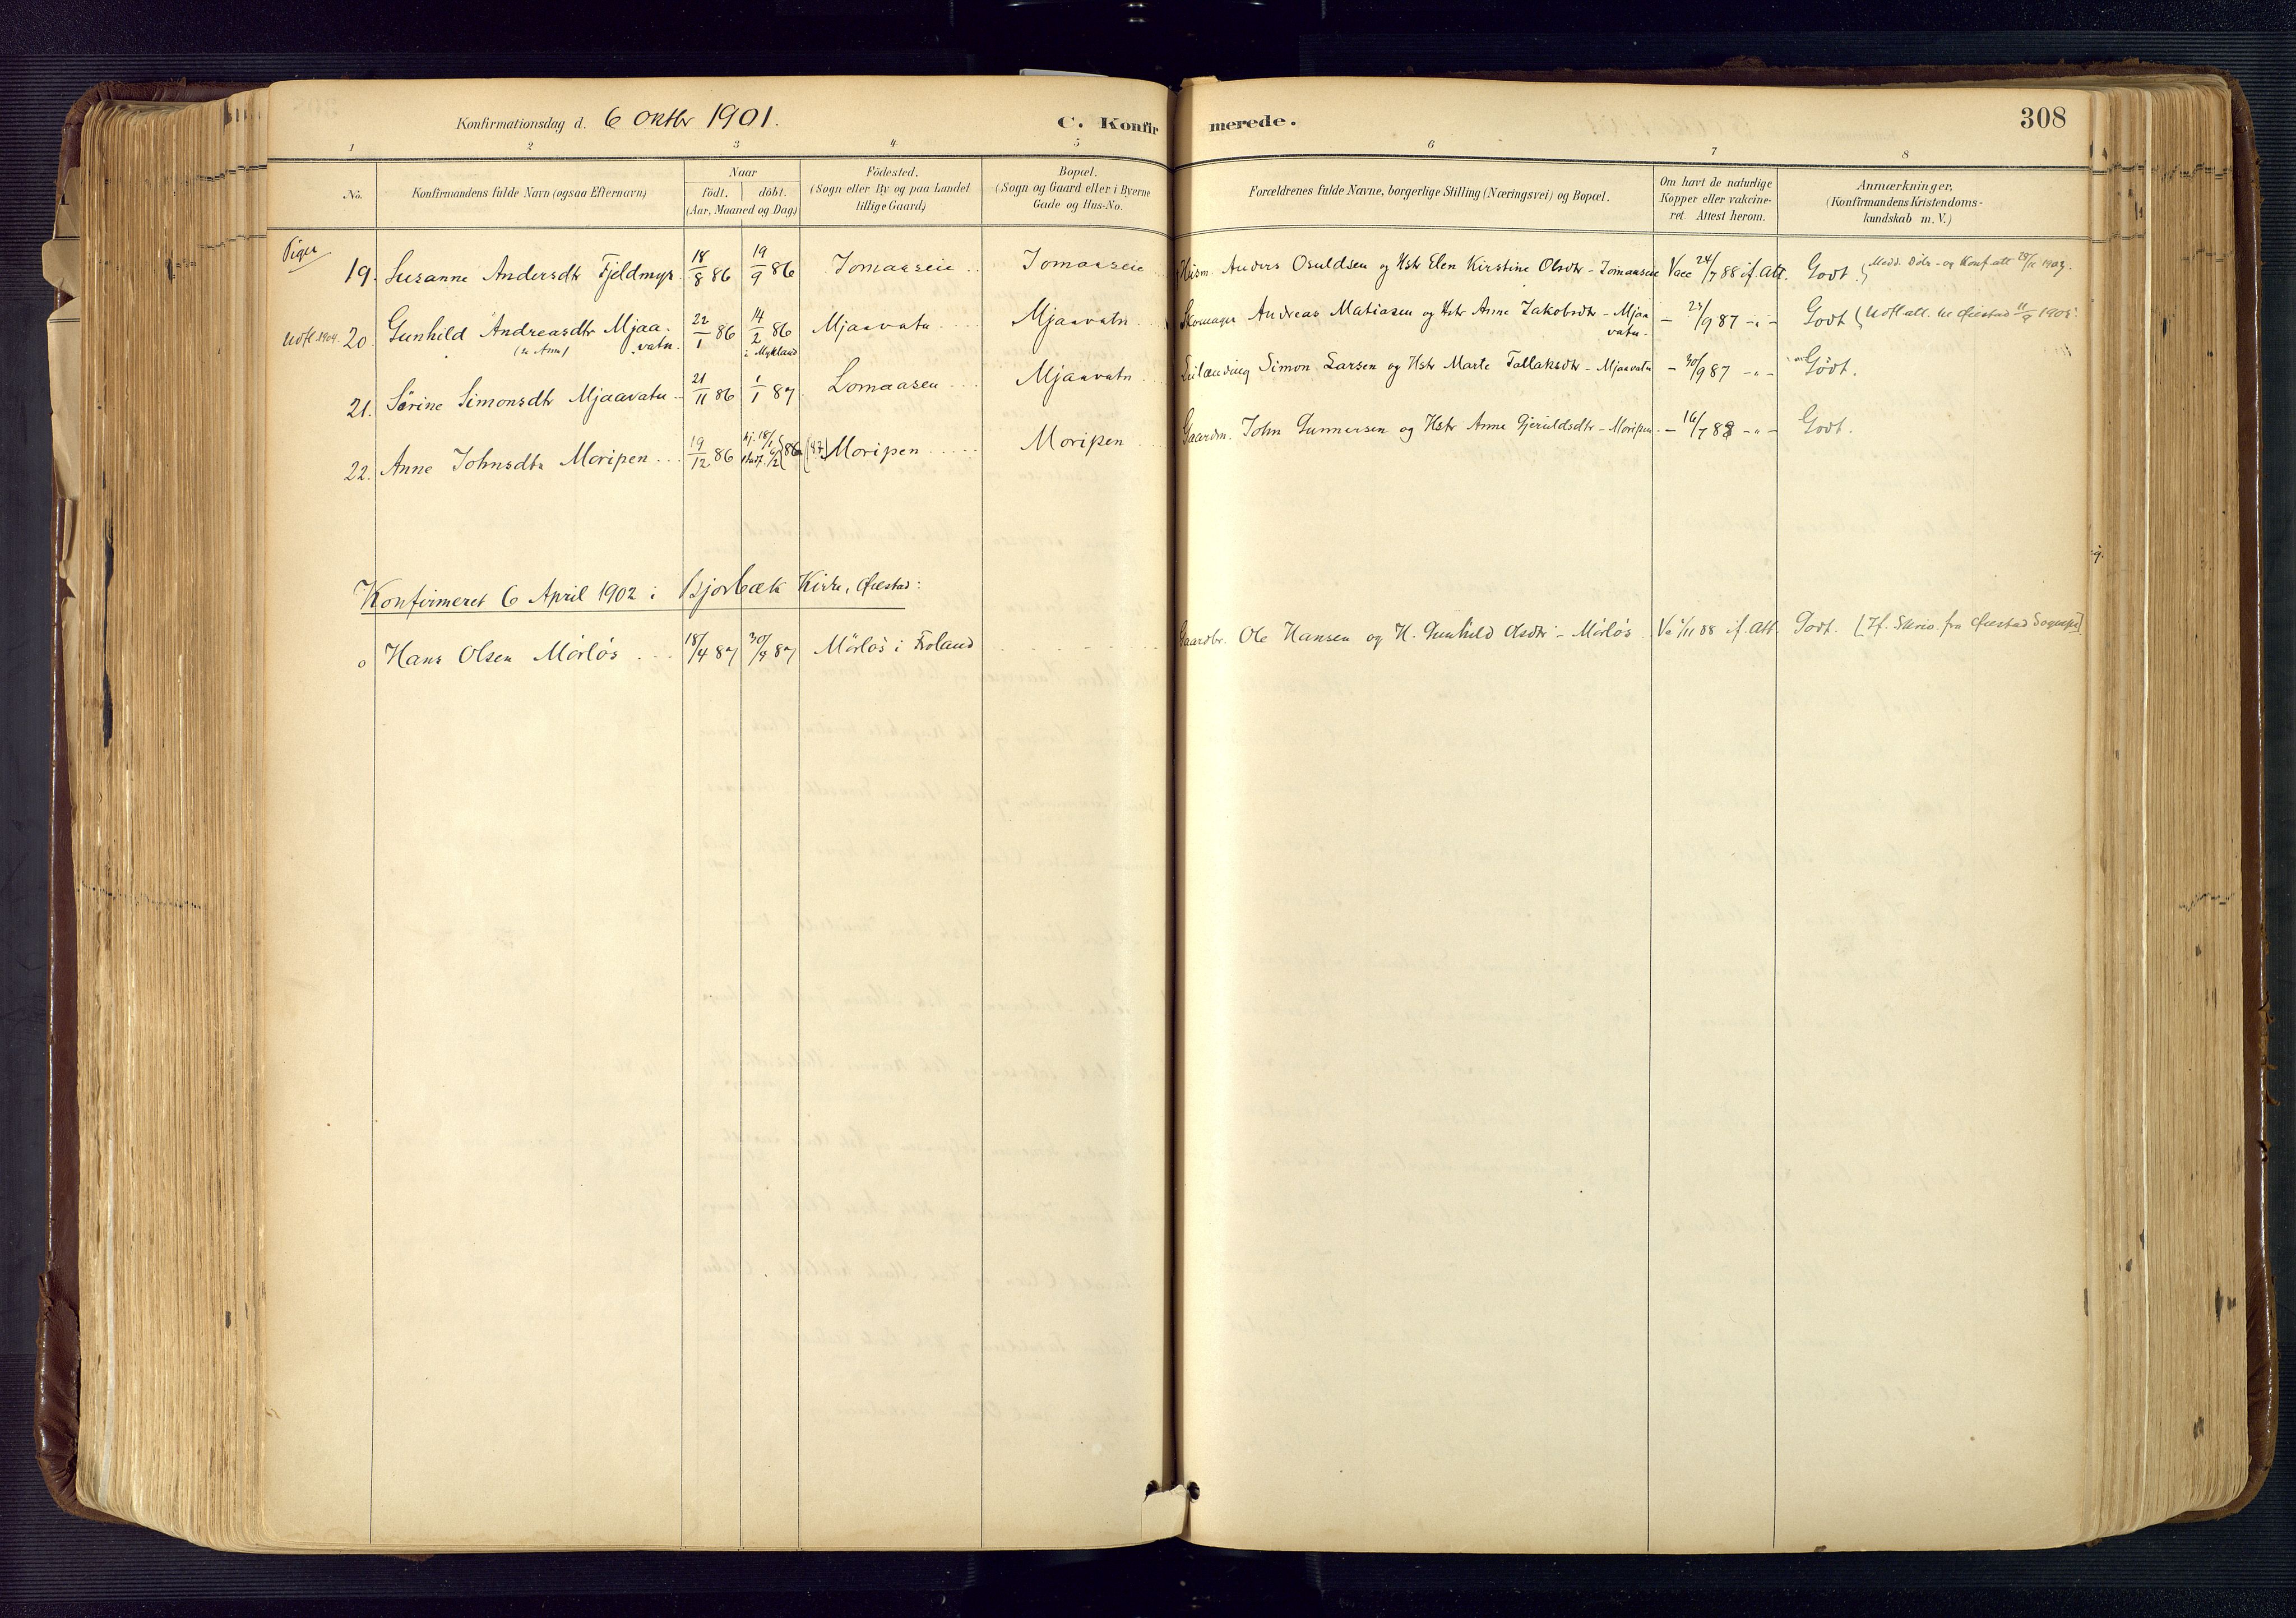 Konfirmationsdag d. 6 Oktbr 1901.
C. Konfirmerede.
308
1 2 3 4 5 6 7 8
No.
Konfirmandens fulde Navn (ogsaa Efternavn)
Naar
födt. döbt.
(Aar, Maaned og Dag)
Födested.
(Sogn eller By og paa Landet
tillige Gaard)
Bopæl.
(Sogn og Gaard eller i Byerne
Gade og Hus-No.
Forældrenes fulde Navne, borgerlige Stilling (Næringsvei) og Bopæl.
Om havt de naturlige
Kopper eller vakcine-
ret. Attest herom.
Anmærkninger,
(Konfirmandens Kristendoms-
kundskab m. V.)
Piger
19. Susanne Andersdtr Fjeldmyr. 18/8 86 19/9 86 Jomaaseie Jomaaseie Husm. Anders Osuldsen og Hstr Elen Kirstine Olsdtr - Jomaaseie Vacc 24/7 88 if. Att. Godt.
Udfl. 1904. 20. Gunhild Andreasdtr Mjaa- 22/1 86 14/2 86 Mjaavatn Mjaavatn Skomager Andreas Matiasen og Hstr Anne Jakobsdtr - Mjaa - 23/9 87 -"- Godt (Udfl att. til Øiestad 11/9 1905.
vatn. i Mykland vatn.
21. Sörine Simonsdtr Mjaavatn 21/11 86 1/1 87 Lomaasen Mjaavatn Leilænding Simon Larsen og Hstr Marte Tallaksdtr - Mjaavatn - 30/9 87 -"- Godt.
22. Anne Johnsdtr Moripen 19/12 86 Moripen Moripen Gaardm. John Gunnersen og Hstr Anne Gjeruldsdtr - Moripen. - 16/7 88 -"- Godt.
Konfirmeret 6 April 1902 i Bjorbæk Kirke, Øiestad:
o Hans Olsen Mörlös 18/4 87 30/4 87 Mörlös i Froland Gaardbr. Ole Hansen og H. Gunhild Olsdtr - Mörlös Va 1/11 88 if. Att. Godt. [If. Skriv. fra Øiestad Sognepr.]